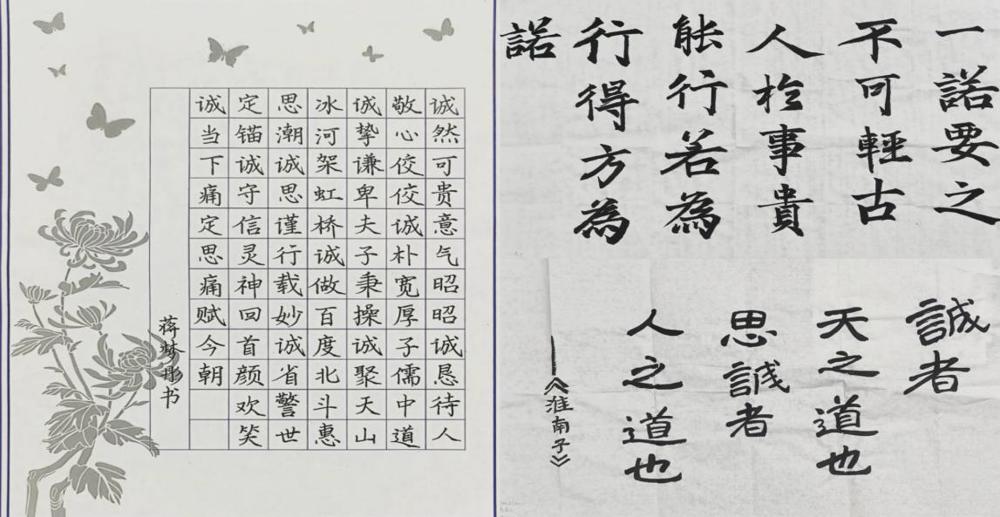 诚然可贵意气昭昭诚恳待人
敬心佼佼诚朴宽厚子儒中道
诚挚谦卑夫子秉操诚聚天山
冰河架虹桥诚做百度北斗惠
思潮诚思谨行载妙诚省警世
定锚诚守信灵神回首颜欢笑
诚当下痛定思痛赋今朝
蒋梦彤书
一諾要之
不可輕古
人於事貴
能行若為
行得方為
諾
誠者
天之道也
思誠者
人之道也
—《淮南子》